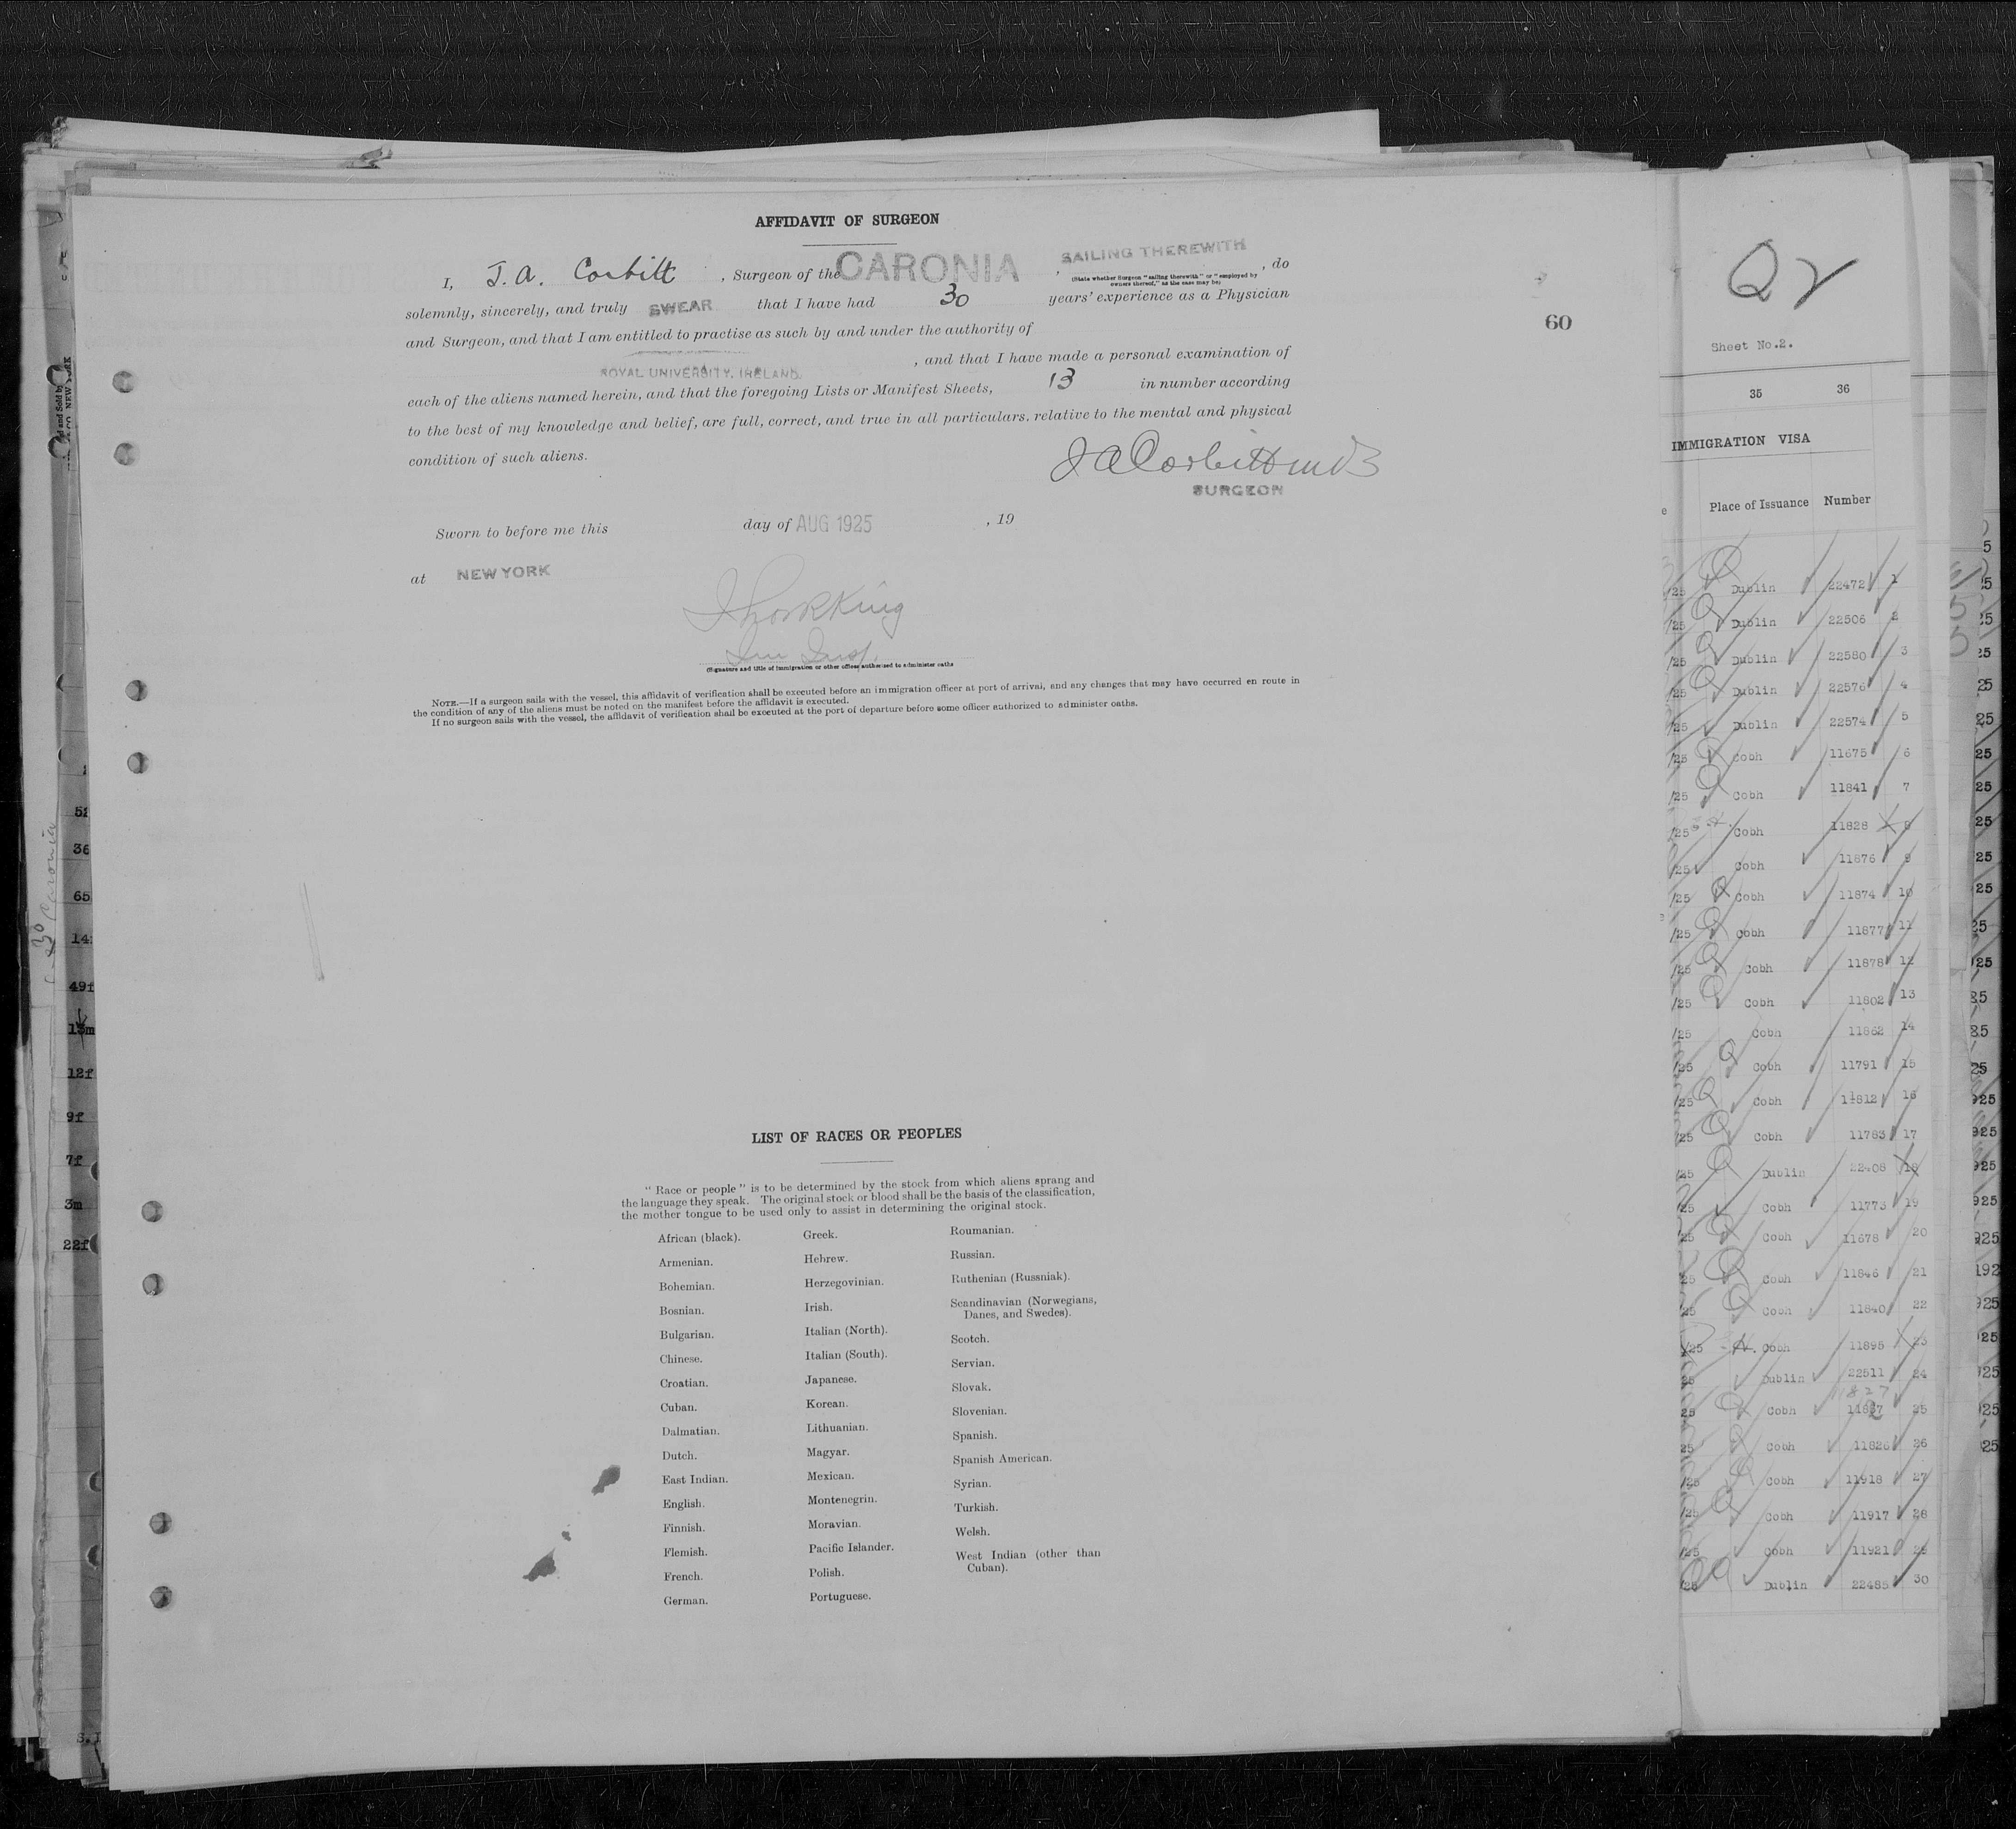 AFFIDAVIT OF SURGEON
I, J. A. Corbitt , Surgeon of the CARONIA , SAILING THEREWITH , do
(State whether Surgeon "sailing therewith" or "employed by
owners thereof," as the case may be)
solemnly, sincerely, and truly SWEAR that I have had 30 years' experience as a Physician
and Surgeon, and that I am entitled to practise as such by and under the authority of
ROYAL UNIVERSITY, IRELAND. , and that I have made a personal examination of
each of the aliens named herein, and that the foregoing Lists or Manifest Sheets, 13 in number according
to the best of my knowledge and belief, are full, correct, and true in all particulars, relative to the mental and physical
condition of such aliens.
J A Corbitt MB
SURGEON
Sworn to before me this day of AUG 1925 , 19
at NEW YORK
King
Imm Insp.
(Signature and title of immigration or other officer authorized to administer oaths
NOTE.—If a surgeon sails with the vessel, this affidavit of verification shall be executed before an immigration officer at port of arrival, and any changes that may have occurred en route in
the condition of any of the aliens must be noted on the manifest before the affidavit is executed.
If no surgeon sails with the vessel, the affidavit of verification shall be executed at the port of departure before some officer authorized to administer oaths.
60
LIST OF RACES OR PEOPLES
"Race or people" is to be determined by the stock from which aliens sprang and
the language they speak. The original stock or blood shall be the basis of the classification,
the mother tongue to be used only to assist in determining the original stock.
African (black).
Armenian.
Bohemian.
Bosnian.
Bulgarian.
Chinese.
Croatian.
Cuban.
Dalmatian.
Dutch.
East Indian.
English.
Finnish.
Flemish.
French.
German.
Greek.
Hebrew.
Herzegovinian.
Irish.
Italian (North).
Italian (South).
Japanese.
Korean.
Lithuanian.
Magyar.
Mexican.
Montenegrin.
Moravian.
Pacific Islander.
Polish.
Portuguese.
Roumanian.
Russian.
Ruthenian (Russniak).
Scandinavian (Norwegians,
Danes, and Swedes).
Scotch.
Servian.
Slovak.
Slovenian.
Spanish.
Spanish American.
Syrian.
Turkish.
Welsh.
West Indian (other than
Cuban).
Sheet No.2.
35 36
IMMIGRATION VISA
Place of Issuance Number
/25 Dublin 22472 1
/25 Dublin 22506 2
/25 Dublin 22580 3
/25 Dublin 22576 4
/25 Dublin 22574 5
/25 Cobh 11675 6
/25 Cobh 11841 7
/25 Cobh 11828 8
/25 Cobh 11876 9
/25 Cobh 11874 10
/25 Cobh 11877 11
/25 Cobh 11878 12
/25 Cobh 11802 13
/25 Cobh 11862 14
/25 Cobh 11791 15
/25 Cobh 11812 16
/25 Cobh 11783 17
/25 Dublin 22408 18
/25 Cobh 11773 19
/25 Cobh 11678 20
/25 Cobh 11846 21
/25 Cobh 11840 22
/25 Cobh 11895 23
25 Dublin 22511 24
25 Cobh 25
25 Cobh 11826 26
/25 Cobh 11918 27
/25 Cobh 11917 28
/25 Cobh 11921 29
/25 Dublin 22485 30
36
65
49f
13m
12f
9f
7f
3m
22f
Caronia